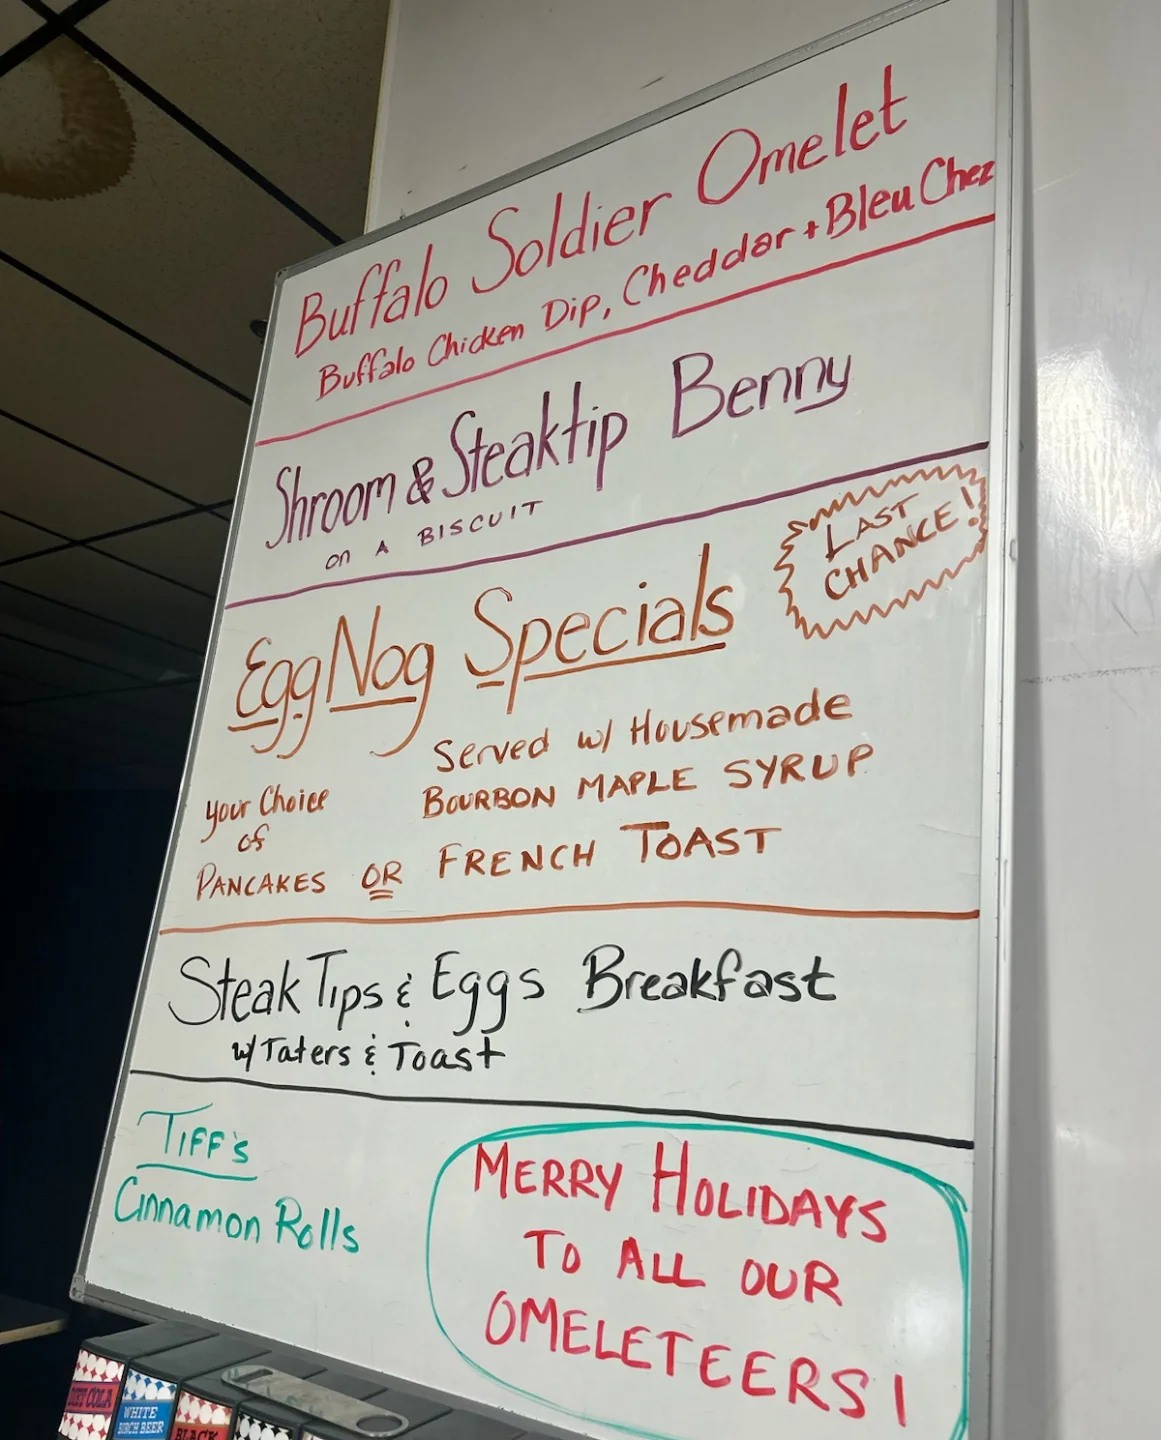 Buffalo Soldier Omelet
Buffalo Chicken Dip, Cheddar + Bleu Chez
Shroom & Steaktip Benny
on A BISCUIT
LAST
CHANCE!
EggNog Specials
Served w/ Housemade
BOURBON MAPLE SYRUP
your Choice
of
PANCAKES OR FRENCH TOAST
Steak Tips & Eggs Breakfast
w/ Taters & Toast
TIFF's
Cinnamon Rolls
MERRY HOLIDAYS
TO ALL OUR
OMELETEERS!
DIET COLA
WHITE
BIRCH BEER
BLACK